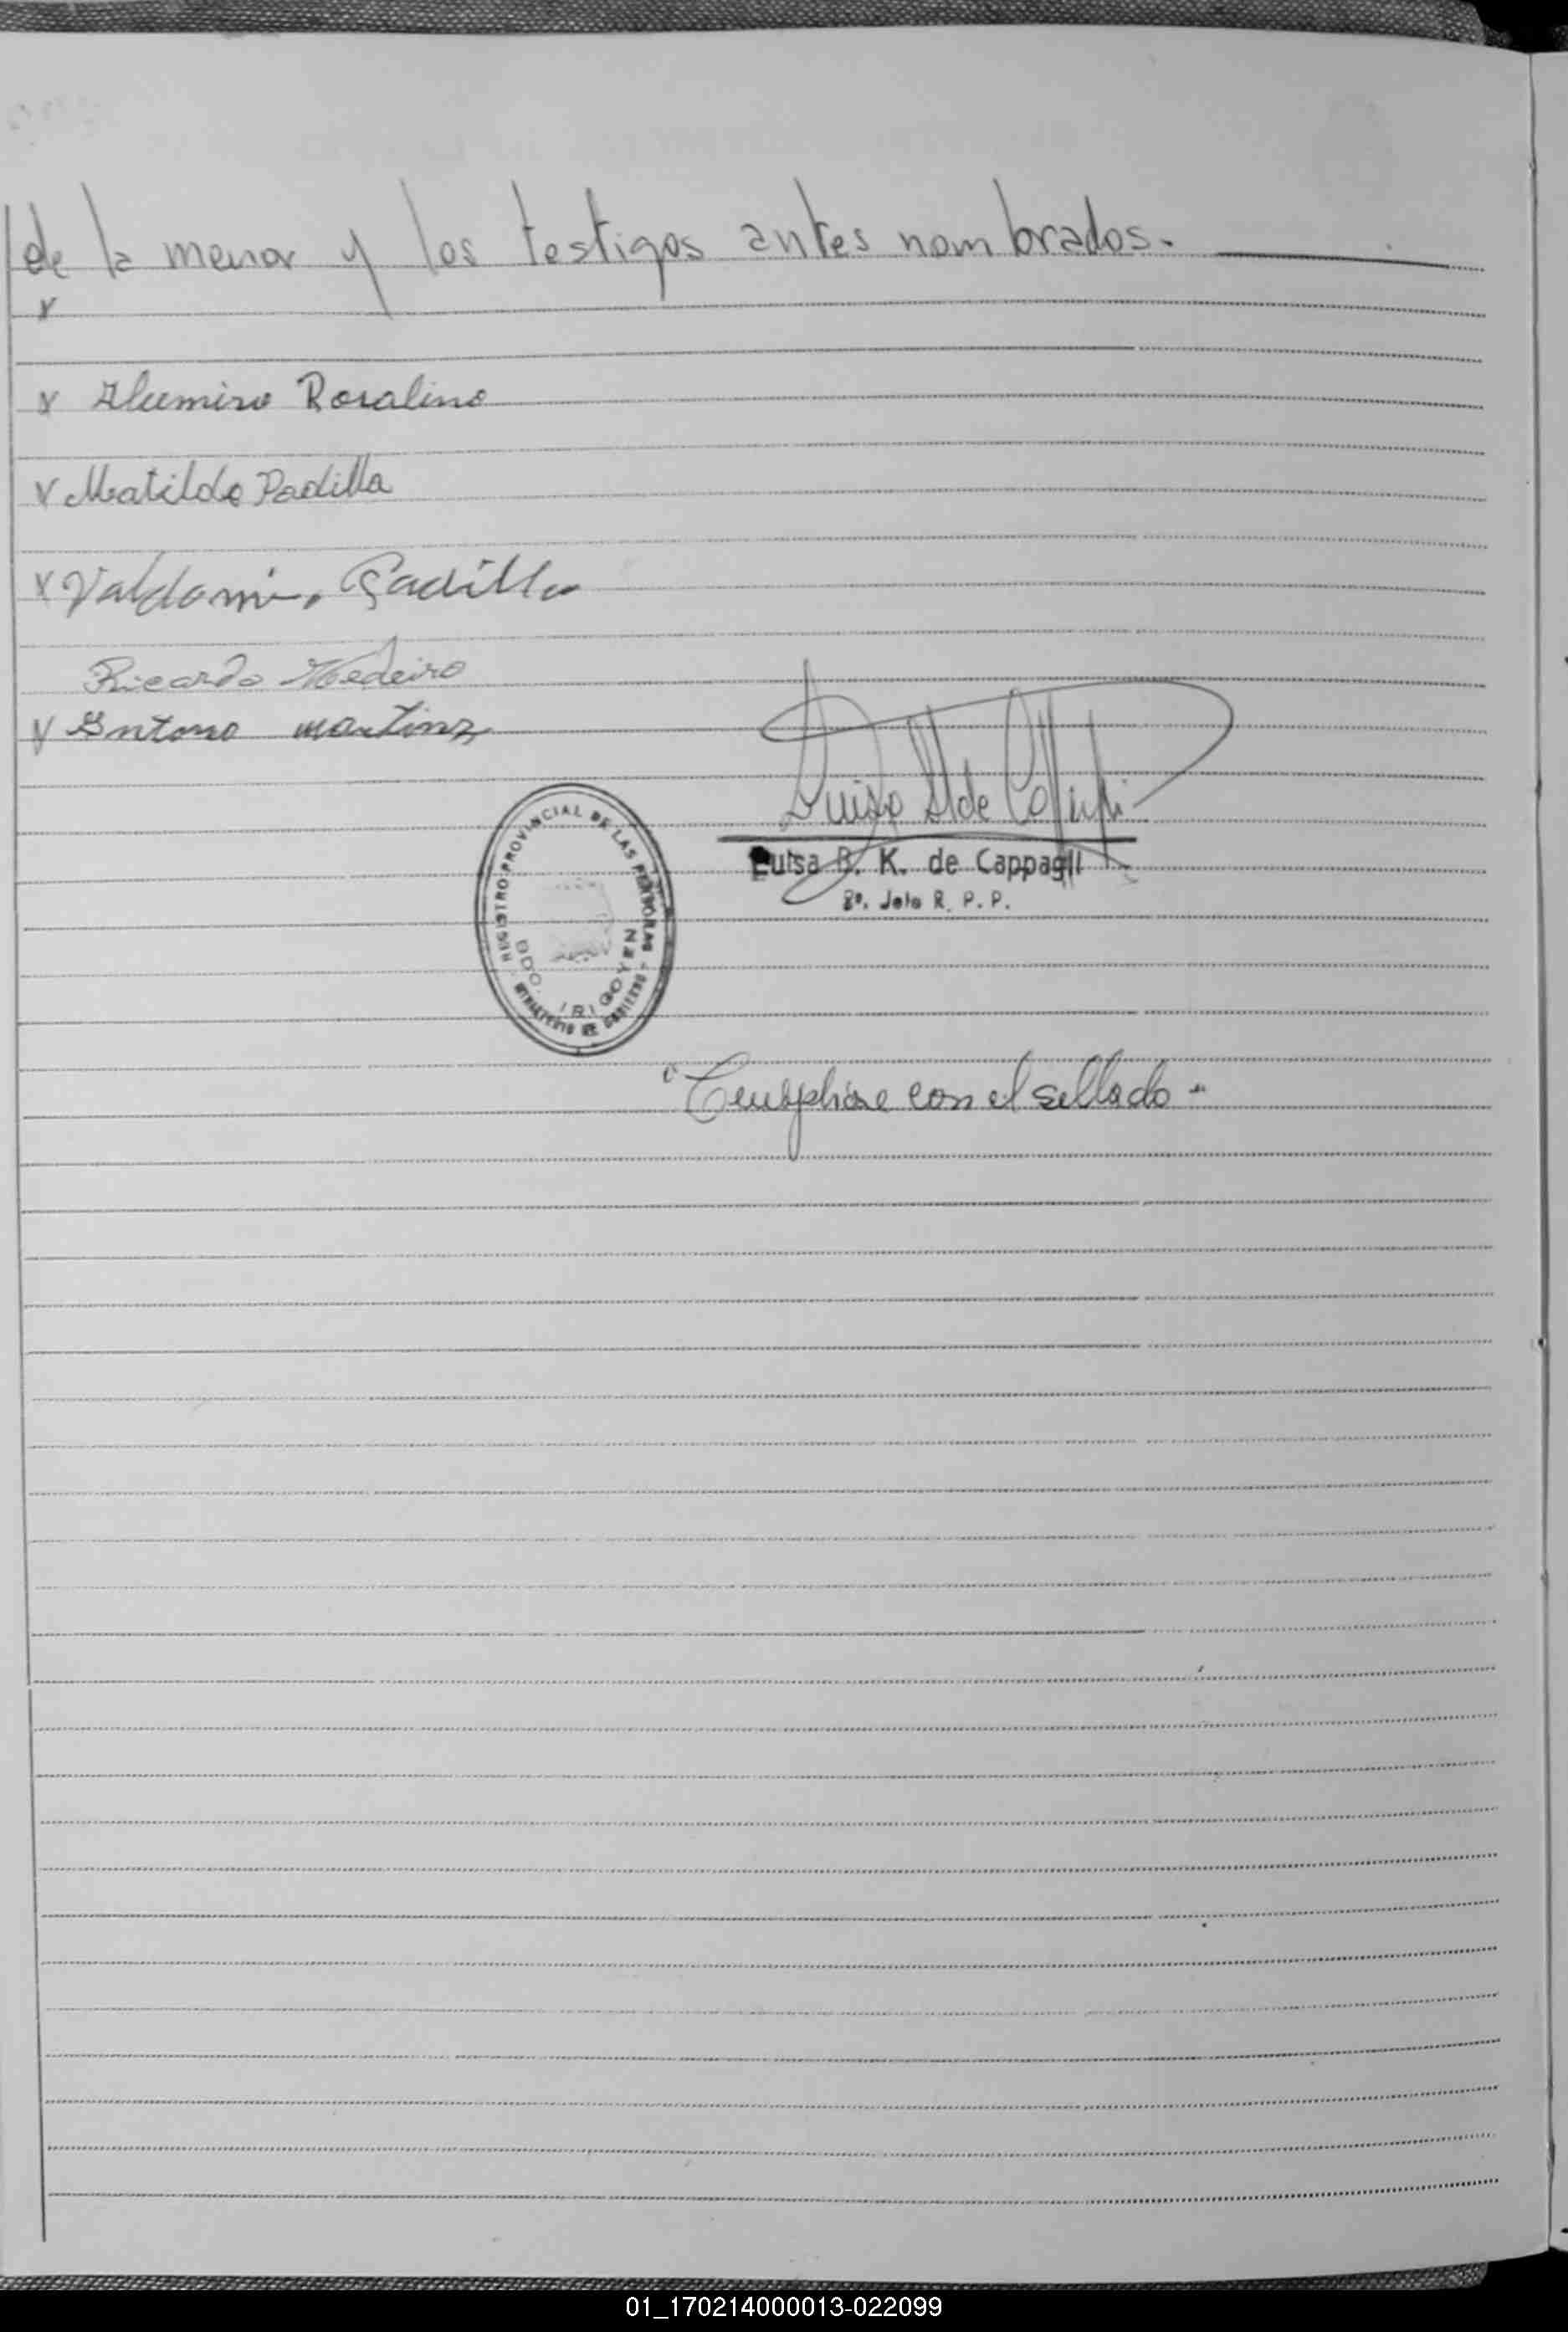 de la menor y los testigos antes nombrados.
x
x Alumiro Rosalino
x Matilde Padilla
x Valdomi, Padilla
Ricardo Medeiro
x Antono Martinz
Luisa B. K. de Cappagli
Jefe R. P. P.
REGISTRO PROVINCIAL DE LAS PERSONAS
BDO. IRIGOYEN
MINISTERIO DE GOBIERNO
con el sellado
01_170214000013-022099